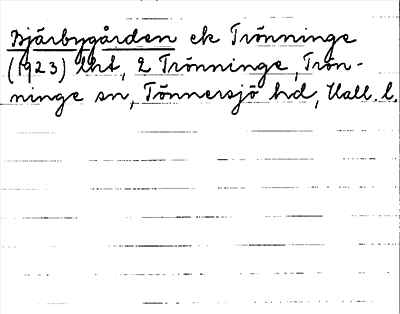 Bjärbygården ek Trönninge
(1923) lht, 2 Trönninge, Trön-
ninge sn, Tönnersjö hd, Hall. l.